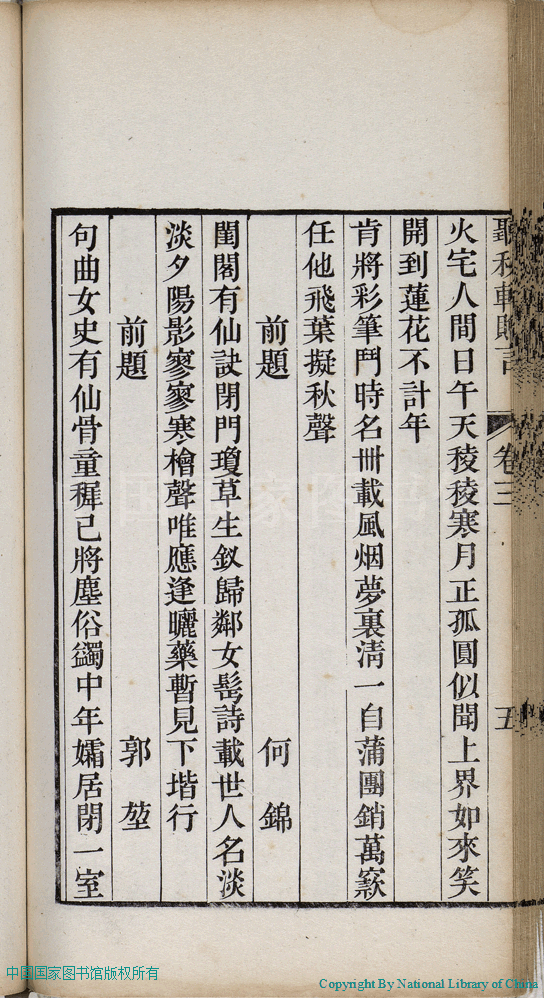 聽秋軒贈言 卷三 五
火宅人間日午天稜稜寒月正孤圓似聞上界如來笑
開到蓮花不計年
肯將彩筆鬥時名卌載風烟夢裏淸一自蒲團銷萬窾
任他飛葉擬秋聲
前題 何錦
閨閣有仙訣閉門瓊草生釵歸鄰女髩詩載世人名淡
淡夕陽影寥寥寒檜聲唯應逢曬藥暫見下堦行
前題 郭堃
句曲女史有仙骨童穉已將塵俗蠲中年孀居閉一室
中国国家图书馆版权所有
Copyright By National Library of China